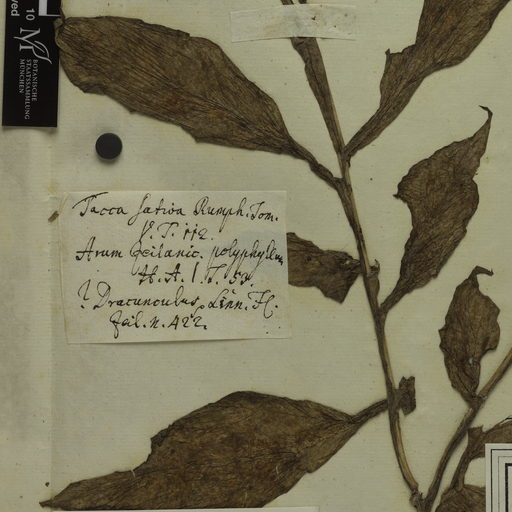 10
BOTANISCHE
STAATSSAMMLUNG
MÜNCHEN
Tacca sativa Rumph. Tom.
V. T. 112.
Arum Zeilanic. polyphyllum
H. A. 1. T. 53.
? Dracunculus, Linn. Fl.
Zeil. n. 422.